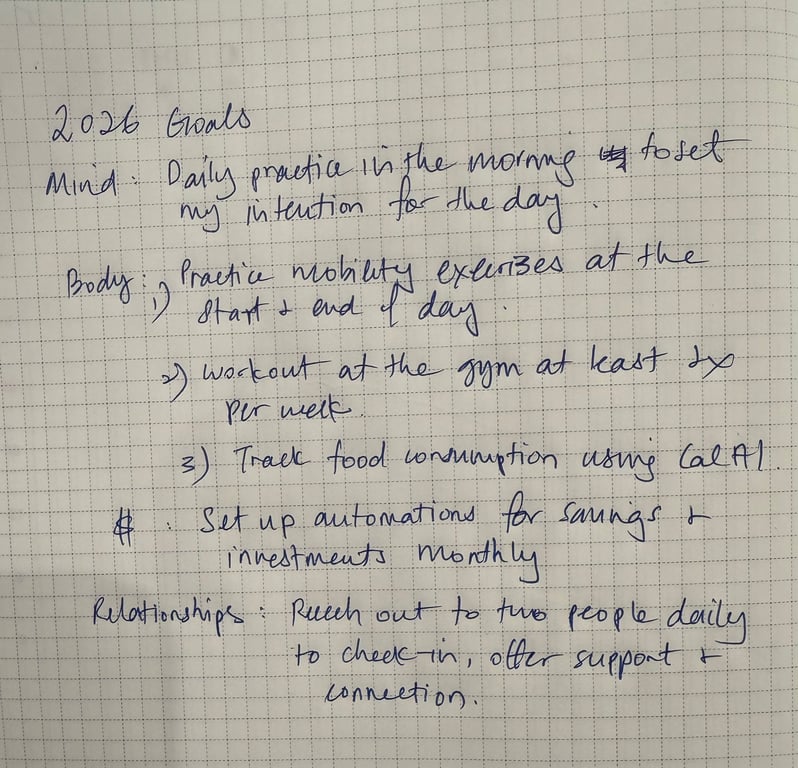 2026 Goals
Mind: Daily practice in the morning to set
my intention for the day.
Body: 1) Practice mobility exercises at the
start & end of day.
2) Workout at the gym at least 2x
per week.
3) Track food consumption using Cal AI.
$: Set up automations for savings &
investments monthly
Relationships: Reach out to two people daily
to check-in, offer support &
connection.